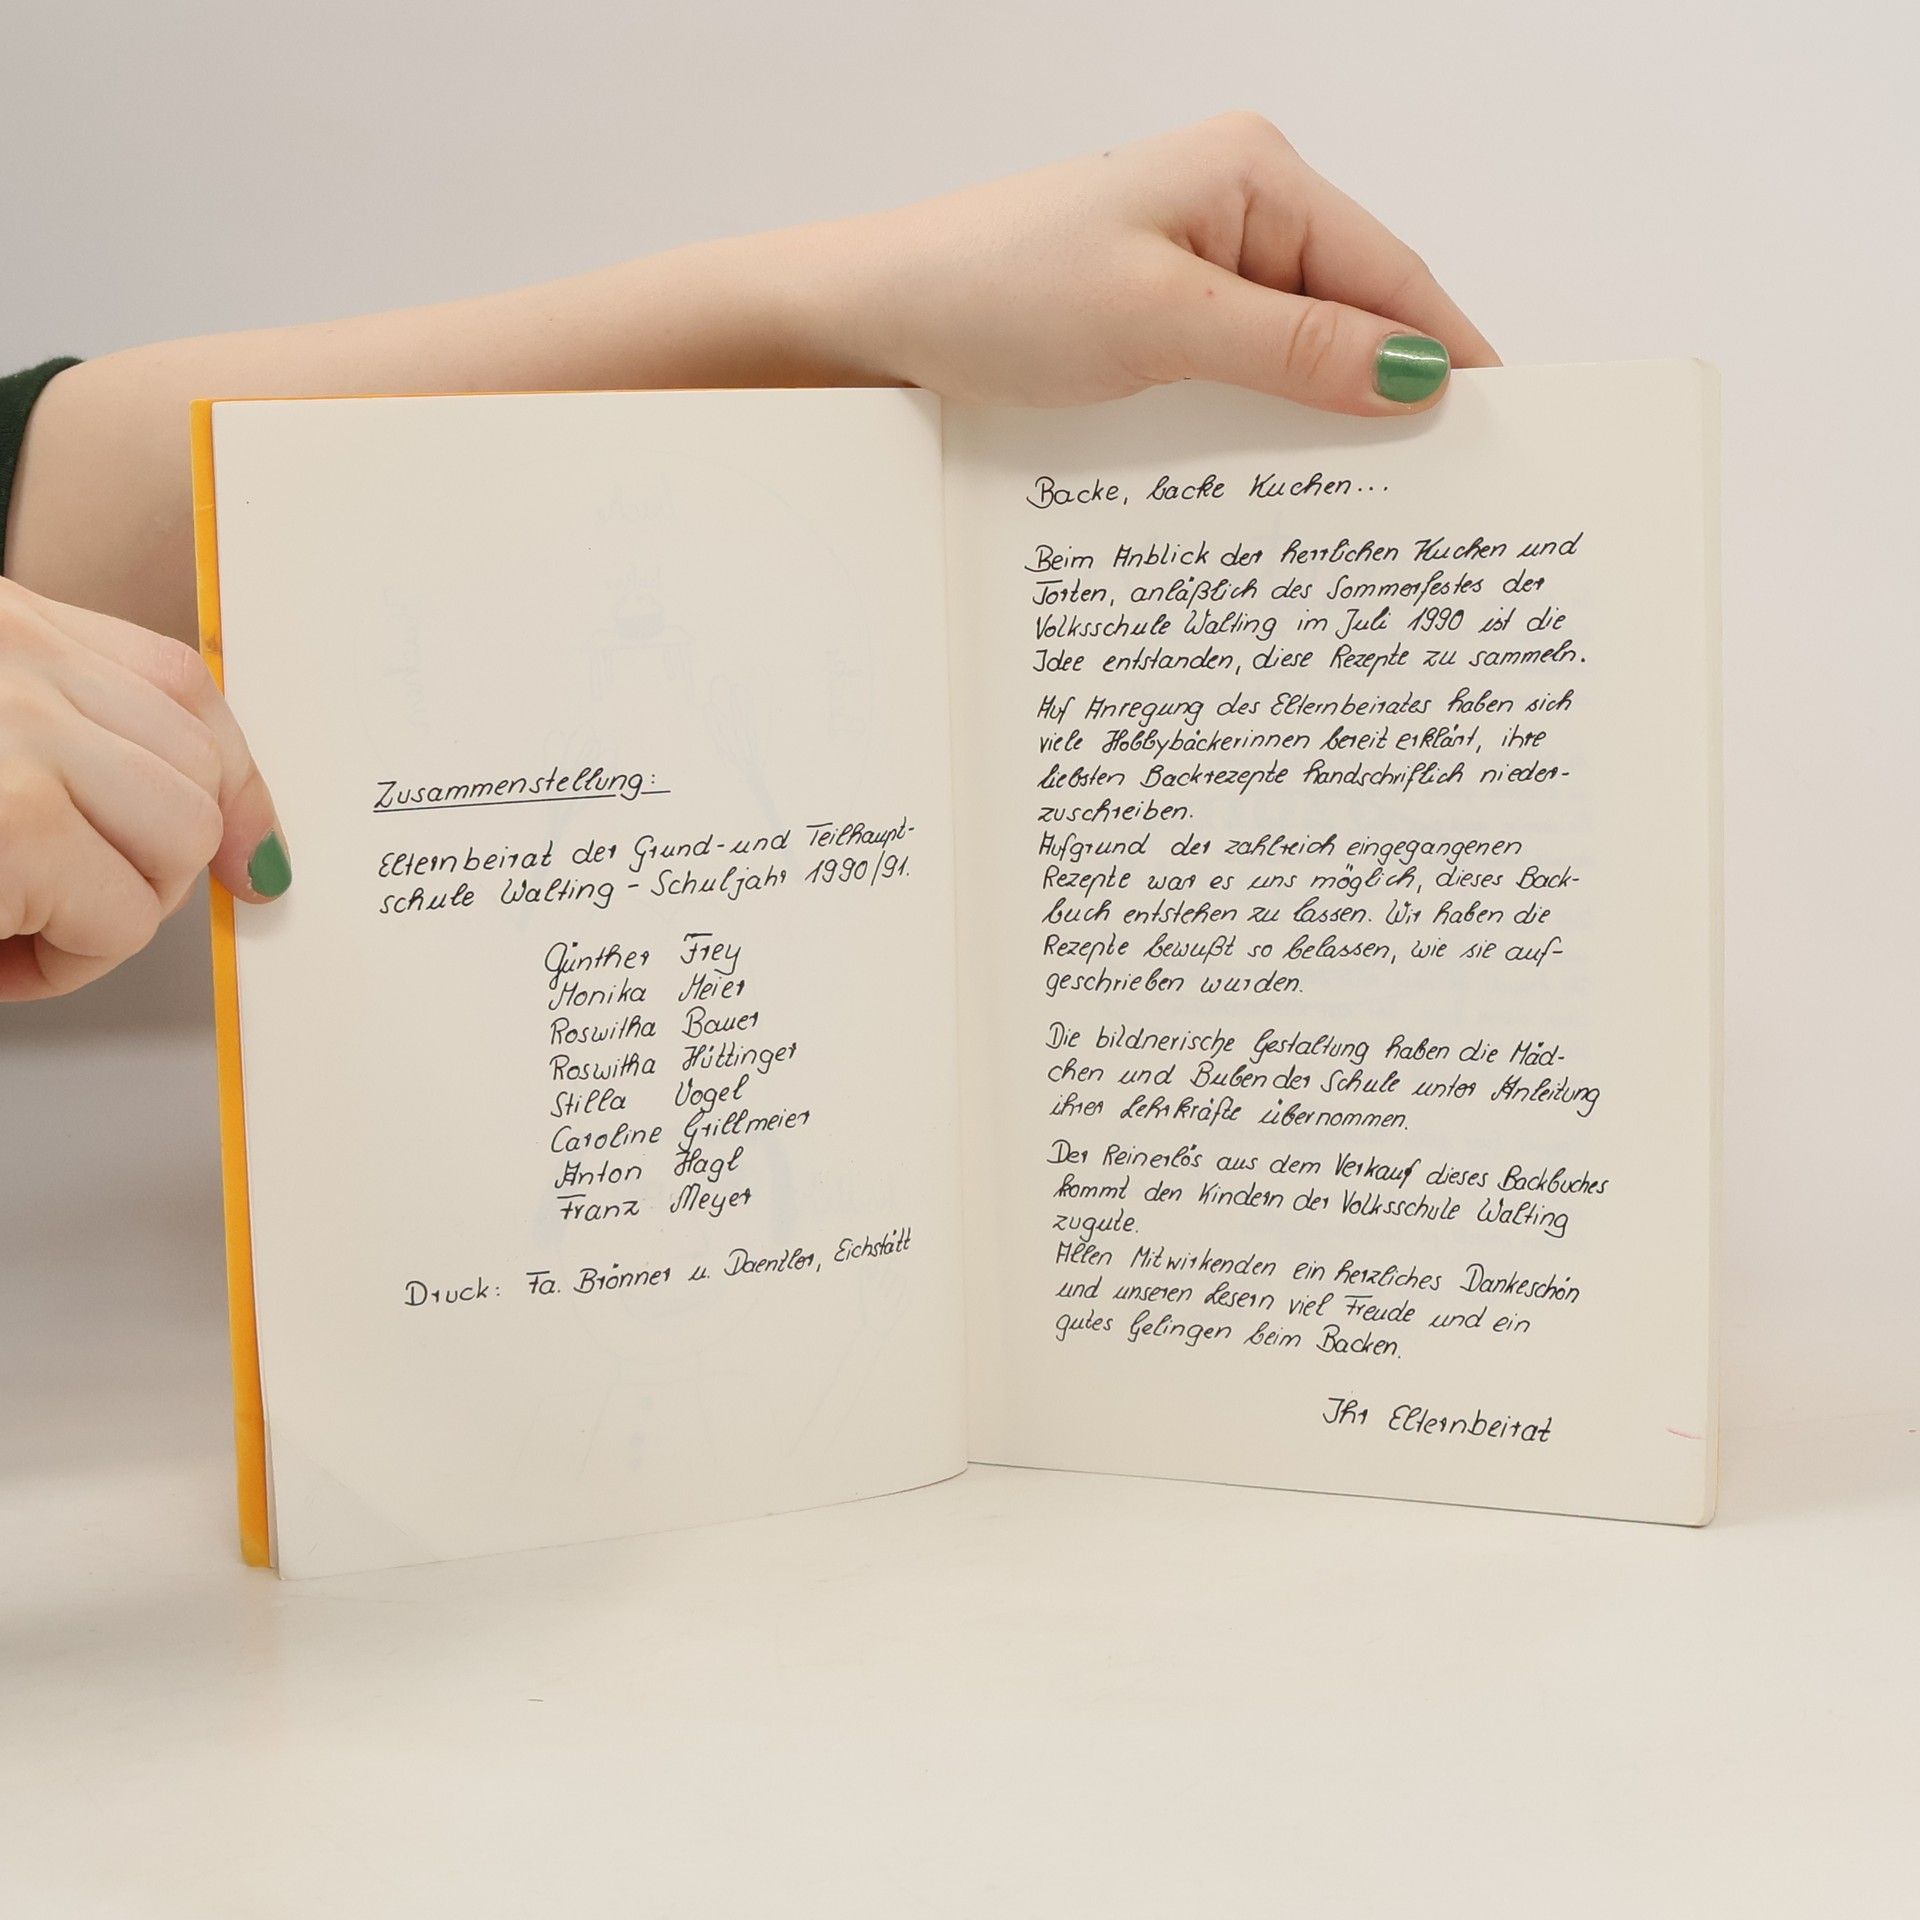 Zusammenstellung:
Elternbeirat der Grund- und Teilhaupt-
schule Walting - Schuljahr 1990/91.
Günther Frey
Monika Meier
Roswitha Bauer
Roswitha Hüttinger
Stilla Vogel
Caroline Grillmeier
Anton Hagl
Franz Meyer
Druck: Fa. Brönner u. Daentler, Eichstätt
Backe, backe Kuchen...
Beim Anblick der herrlichen Kuchen und
Torten, anläßlich des Sommerfestes der
Volksschule Walting im Juli 1990 ist die
Idee entstanden, diese Rezepte zu sammeln.
Auf Anregung des Elternbeirates haben sich
viele Hobbybäckerinnen bereit erklärt, ihre
liebsten Backrezepte handschriftlich nieder-
zuschreiben.
Aufgrund der zahlreich eingegangenen
Rezepte war es uns möglich, dieses Back-
buch entstehen zu lassen. Wir haben die
Rezepte bewußt so belassen, wie sie auf-
geschrieben wurden.
Die bildnerische Gestaltung haben die Mäd-
chen und Buben der Schule unter Anleitung
ihrer Lehrkräfte übernommen.
Der Reinerlös aus dem Verkauf dieses Backbuches
kommt den Kindern der Volksschule Walting
zugute.
Allen Mitwirkenden ein herzliches Dankeschön
und unseren Lesern viel Freude und ein
gutes Gelingen beim Backen.
Ihr Elternbeirat